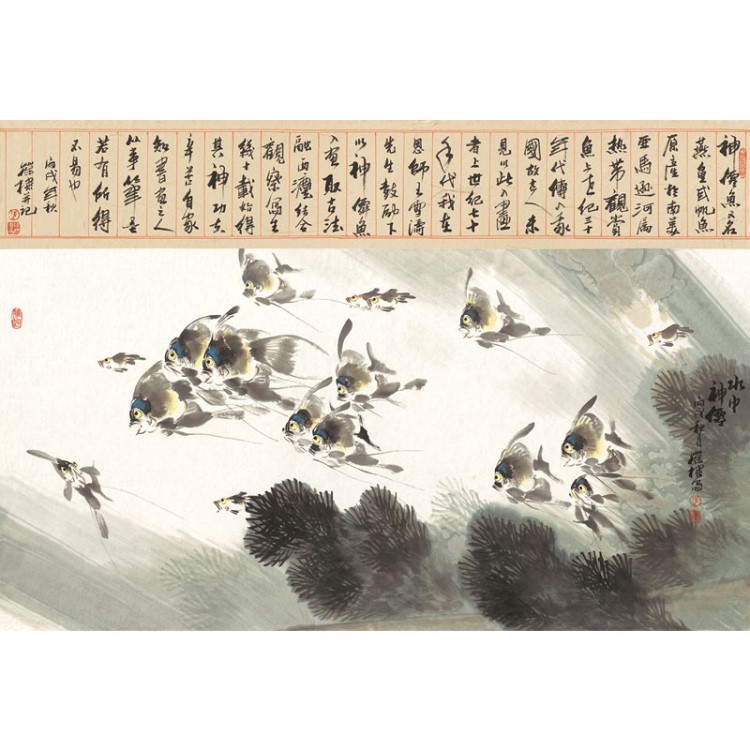 神僊魚又名
燕魚或帆魚
原產於南美
亞馬遜河為
熱帶觀賞
魚上世紀三十
年代傳入我
國故古人未
見以此入畫
者上世紀七十
年代我在
恩師王雪濤
先生鼓勵下
以神僊魚
入畫取古法
融西灋結合
觀察寫生
幾十載始得
其神功夫
辛苦自家
知書畫之人
從事筆墨
若有所得
不易也
丙戌年秋
並記
水中
神僊
丙戌秋月
寫